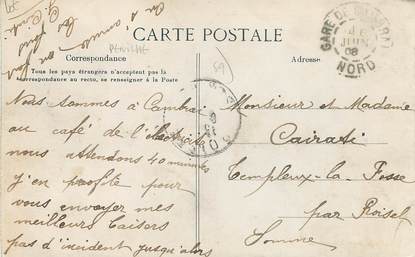 On s'amuse
CARTE POSTALE
Correspondance
Tous les pays étrangers n'acceptent pas la
correspondance au recto, se renseigner à la Poste
Adresse
GARE DE
NORD
08
59
Nous sommes à Cambrai
au café de l'électricité
nous attendons 40 minutes
j'en profite pour
vous envoyer mes
meilleurs baisers
pas d'incident jusqu'alors
Monsieur et Madame
Cairati
Templeux-la Fosse
par Roisel
Somme